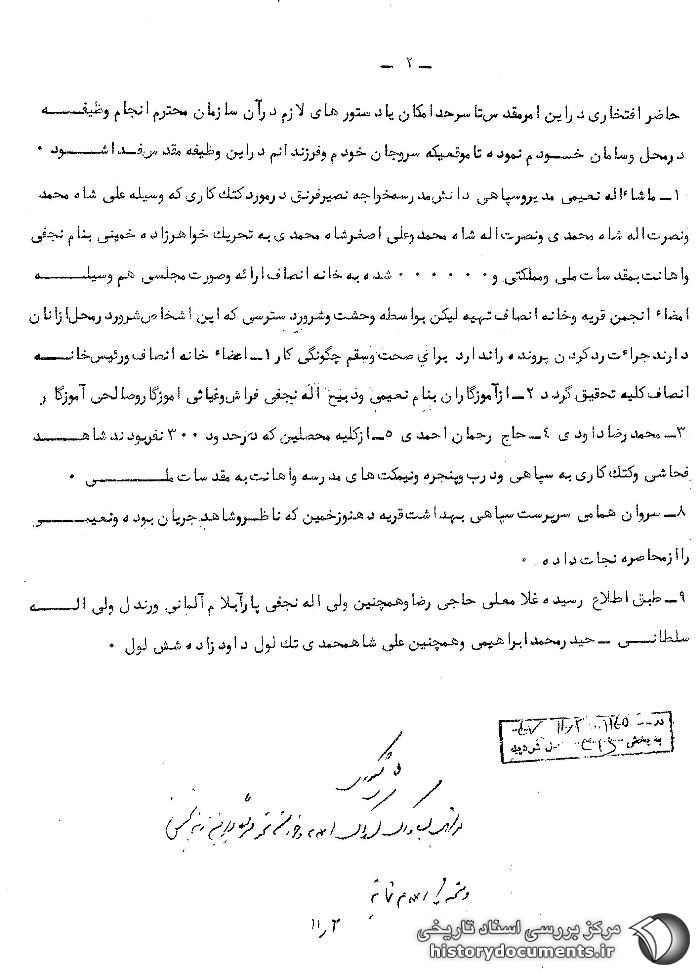 ـ ۲ ـ
حاضر افتخاری در این امر مقدس تا سرحد امکان با دستور های لازم در آن سازمان محترم انجام وظیفــــه
در محل و سامان خـــودم نموده تا موقعیکه سروجان خودم و فرزندانم در این وظیفه مقدس فدا شـــود ۰
۱ـ ماشاءاله نعیمی مدیر و سپاهی دانش مدرسه خواجه نصیر فرنق در مورد کتک کاری که وسیله علی شاه محمد
ونصرت اله شاه محمدی ونصرت اله شاه محمد وعلی اصغر شاه محمدی به تحریک خواهرزاده خمینی بنام نجفی
واهانت بمقدسات ملی ومملکتی و ۰۰۰۰۰۰ شده به خانه انصاف ارائه وصورت مجلسی هم وسیلـــــه
امضاء انجمن قریه وخانه انصاف تهیه لیکن بواسطه وحشت وشرور دسترسی که این اشخاص شرور در محل از انان
دارند جراءت رد کردن پرونده را ندارد برای صحت وسقم چگونگی کار ۱ـ اعضاء خانه انصاف ورئیس خانــــه
انصاف کلیه تحقیق گردد ۲ـ از آموزگاران بنام نعیمی وذبیح اله نجفی فراش وغیاثی اموزگار وصالحی آموزگار و
۳ـ محمد رضا داودی ۴ـ حاج رحمان احمدی ۵ـ از کلیه محصلین که در حدود ۳۰۰ نفر بودند شاهـــد
فحاشی وکتک کاری به سپاهی ودرب وپنجره ونیمکت های مدرسه واهانت به مقدسات ملــــی ۰
۸ـ سروان همامی سرپرست سپاهی بهداشت قریه دهنو زخمین که ناظـر وشاهد جریان بوده ونعیمـــی
را از محاصره نجات داده ۰
۹ـ طبق اطلاع رسیده غلامعلی حاجی رضا وهمچنین ولی اله نجفی پارآبلام آلمانی ورندل ولی الـــه
سلطانـــی ـ حیدر محمد ابراهیمی وهمچنین علی شاهمحمدی تک لول داود زاده شش لول ۰
به بخش
۱۱٫۳
مرکز بررسی اسناد تاریخی
historydocuments.ir